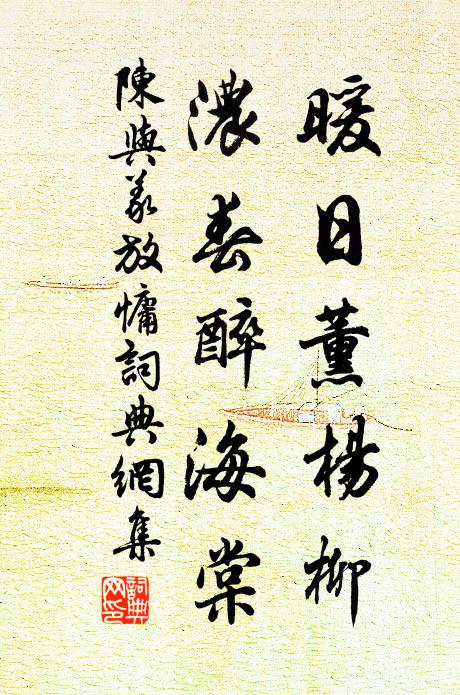 暖日薰楊柳
濃春醉海棠
陳與義放慵詞典網集
詞典網印